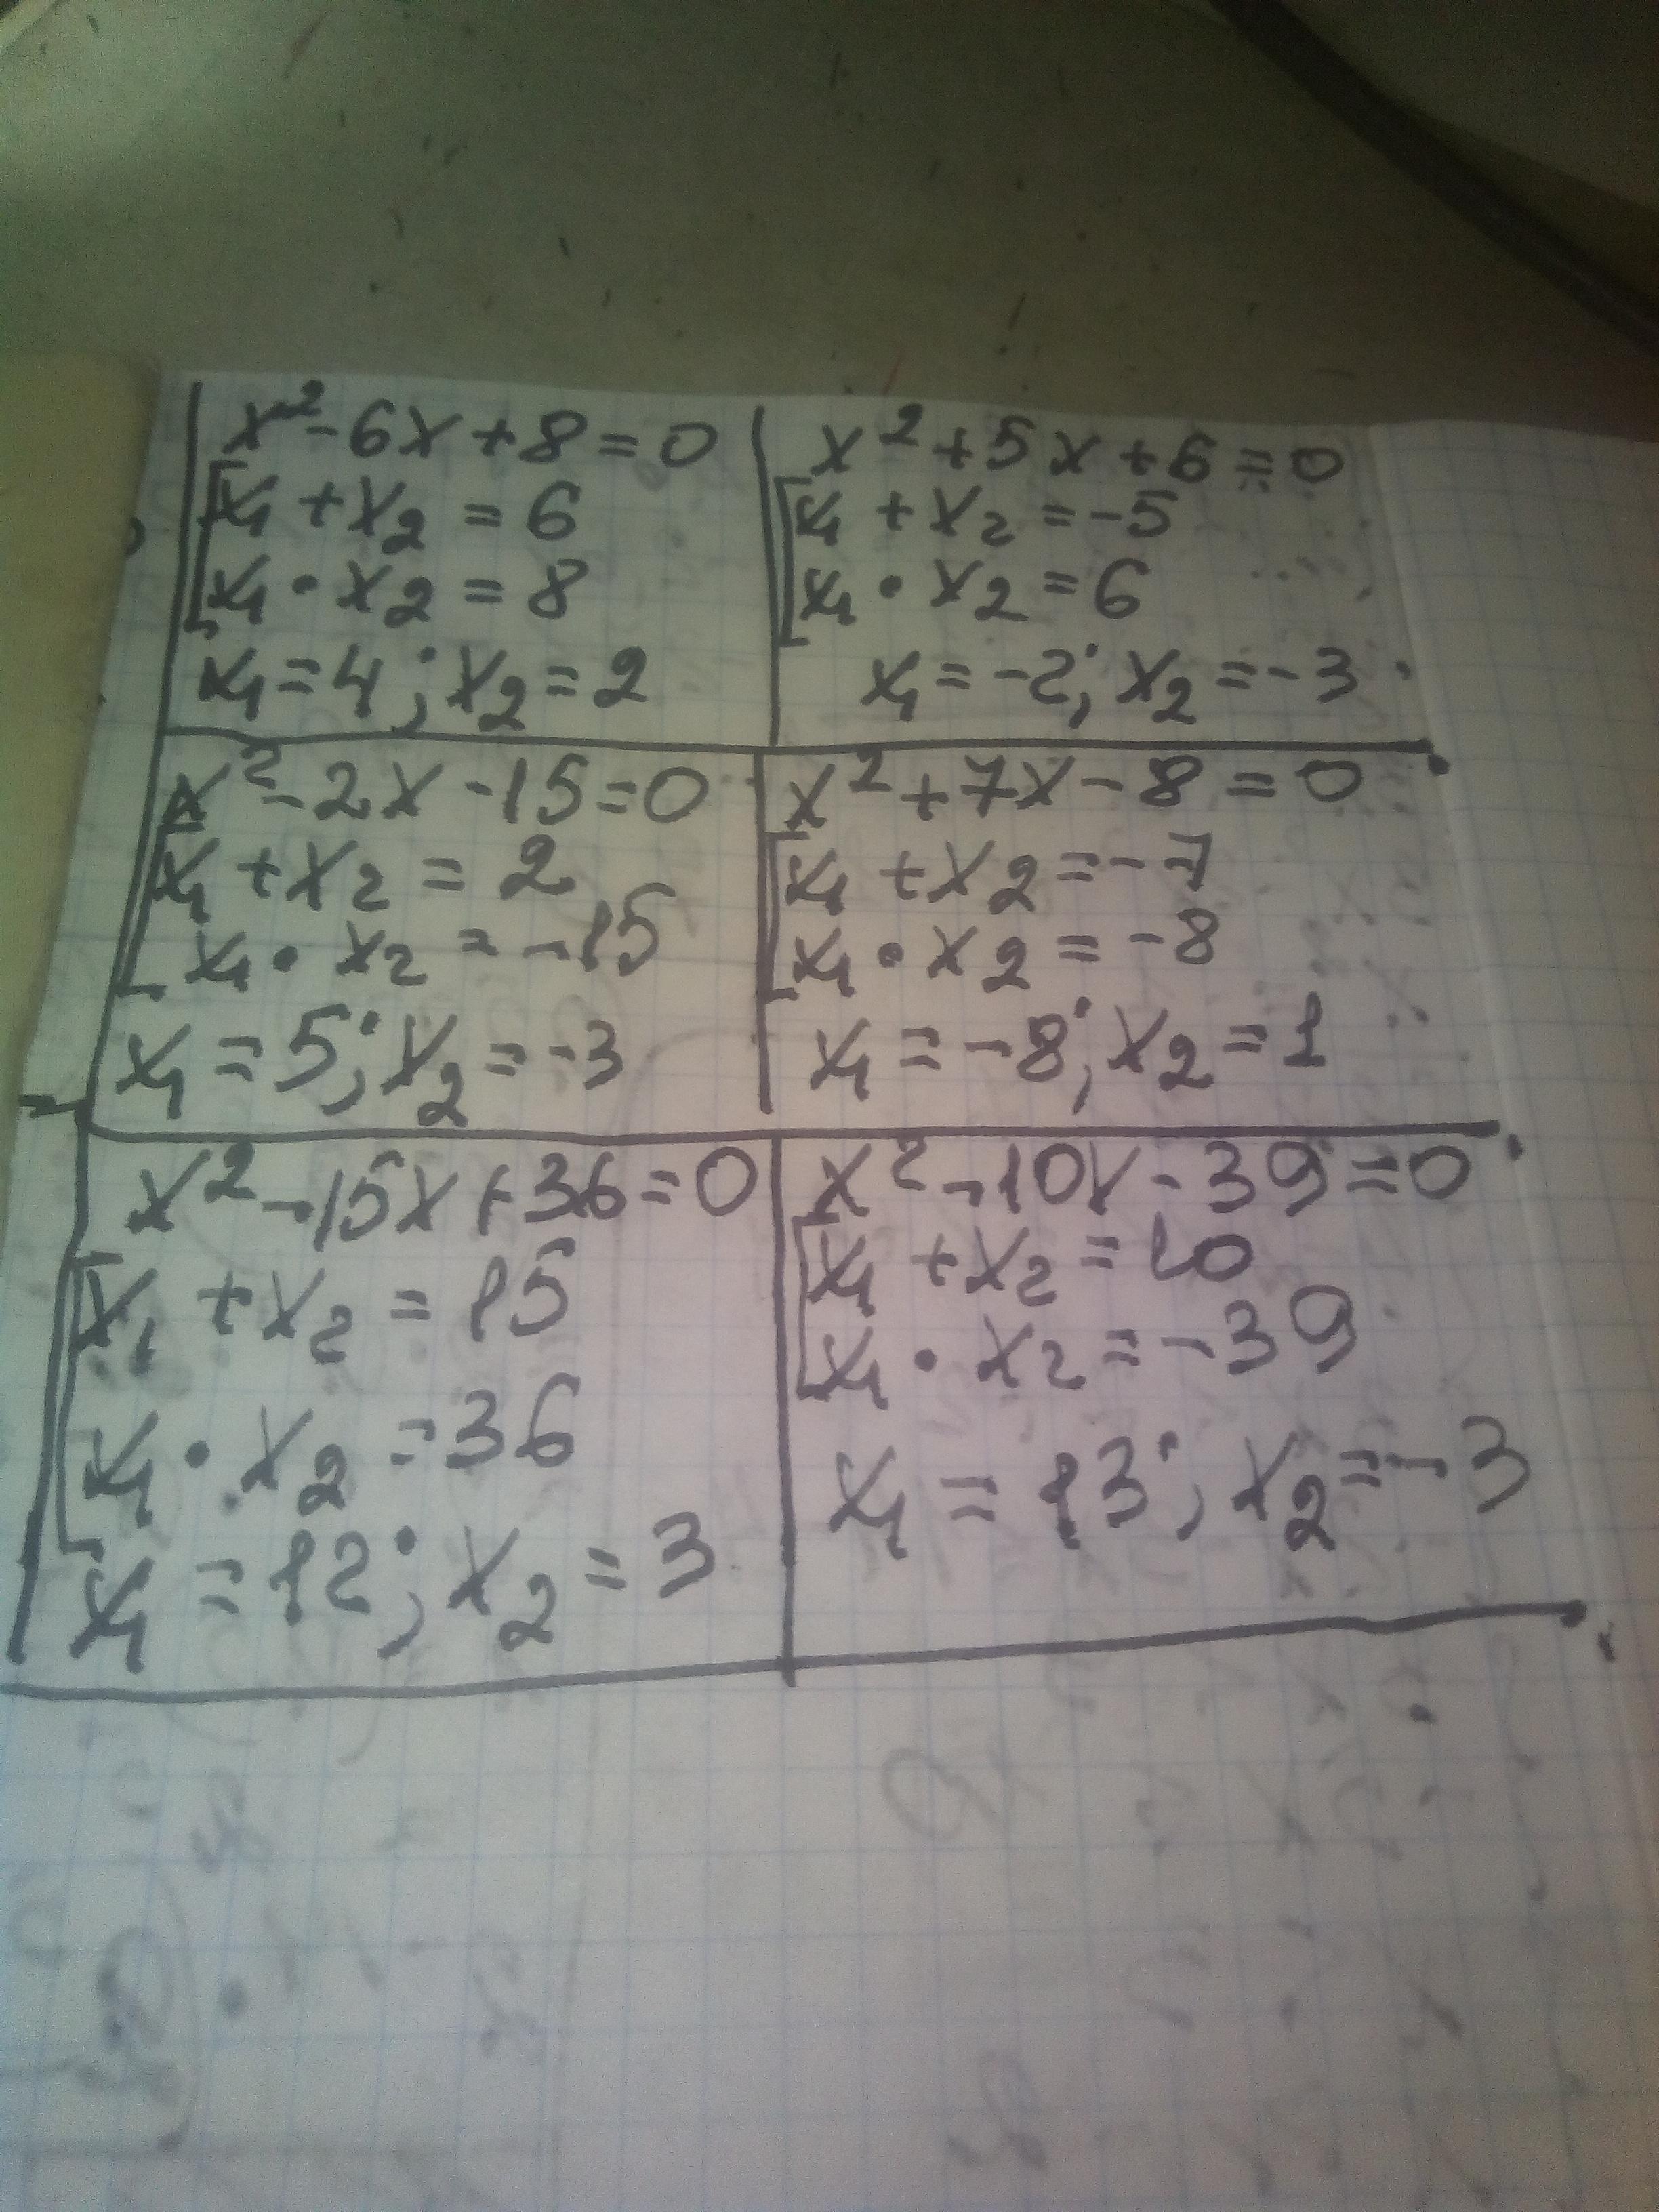 x²-6x+8=0
x₁+x₂=6
x₁·x₂=8
x₁=4; x₂=2
x²+5x+6=0
x₁+x₂=-5
x₁·x₂=6
x₁=-2; x₂=-3
x²-2x-15=0
x₁+x₂=2
x₁·x₂=-15
x₁=5; x₂=-3
x²+7x-8=0
x₁+x₂=-7
x₁·x₂=-8
x₁=-8; x₂=1
x²-15x+36=0
x₁+x₂=15
x₁·x₂=36
x₁=12; x₂=3
x²-10x-39=0
x₁+x₂=10
x₁·x₂=-39
x₁=13; x₂=-3